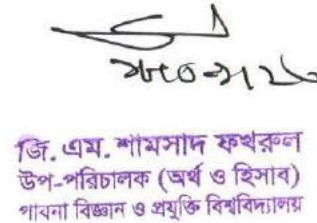 জি. এম. শামসাদ ফখরুল
উপ-পরিচালক (অর্থ ও হিসাব)
পাবনা বিজ্ঞান ও প্রযুক্তি বিশ্ববিদ্যালয়